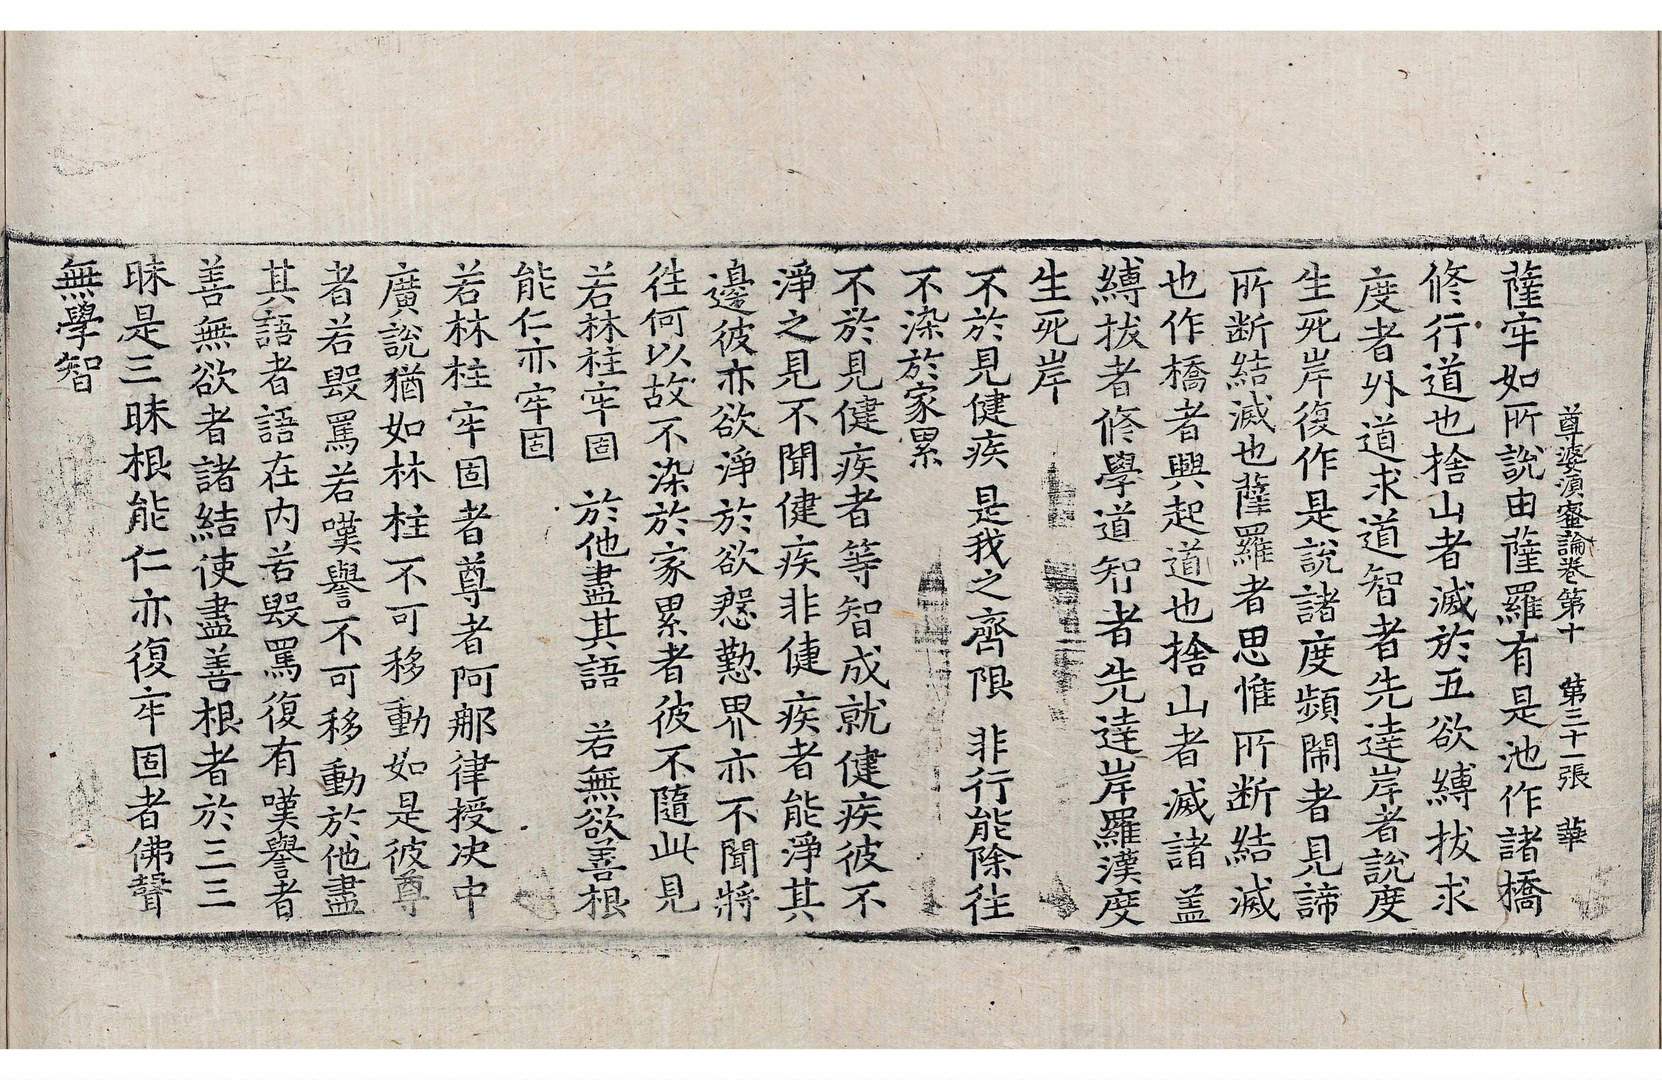 尊婆湏蜜論卷第十　第三十一張　華
薩牢如所說由薩羅有是池作諸橋
修行道也捨山者滅於五欲縛拔求
度者外道求道智者先達岸者說度
生死岸復作是說諸度頻閙者見諦
所断結滅也薩羅者思惟所断結滅
也作橋者興起道也捨山者滅諸盖
縛拔者修學道智者先達岸羅漢度
生死岸
不於見健疾　是我之齊限　非行能除往
不染於家累
不於見健疾者等智成就健疾彼不
淨之見不聞健疾非健疾者能淨其
邊彼亦欲淨於欲慇懃界亦不聞將
往何以故不染於家累者彼不隨此見
若林柱牢固　於他盡其語　若無欲善根
能仁亦牢固
若林柱牢固者尊者阿那律授决中
廣說猶如林柱不可移動如是彼尊
者若毀罵若嘆譽不可移動於他盡
其語者語在內若毀罵復有嘆譽者
善無欲者諸結使盡善根者於三三
昧是三昧根能仁亦復牢固者佛聲
無學智